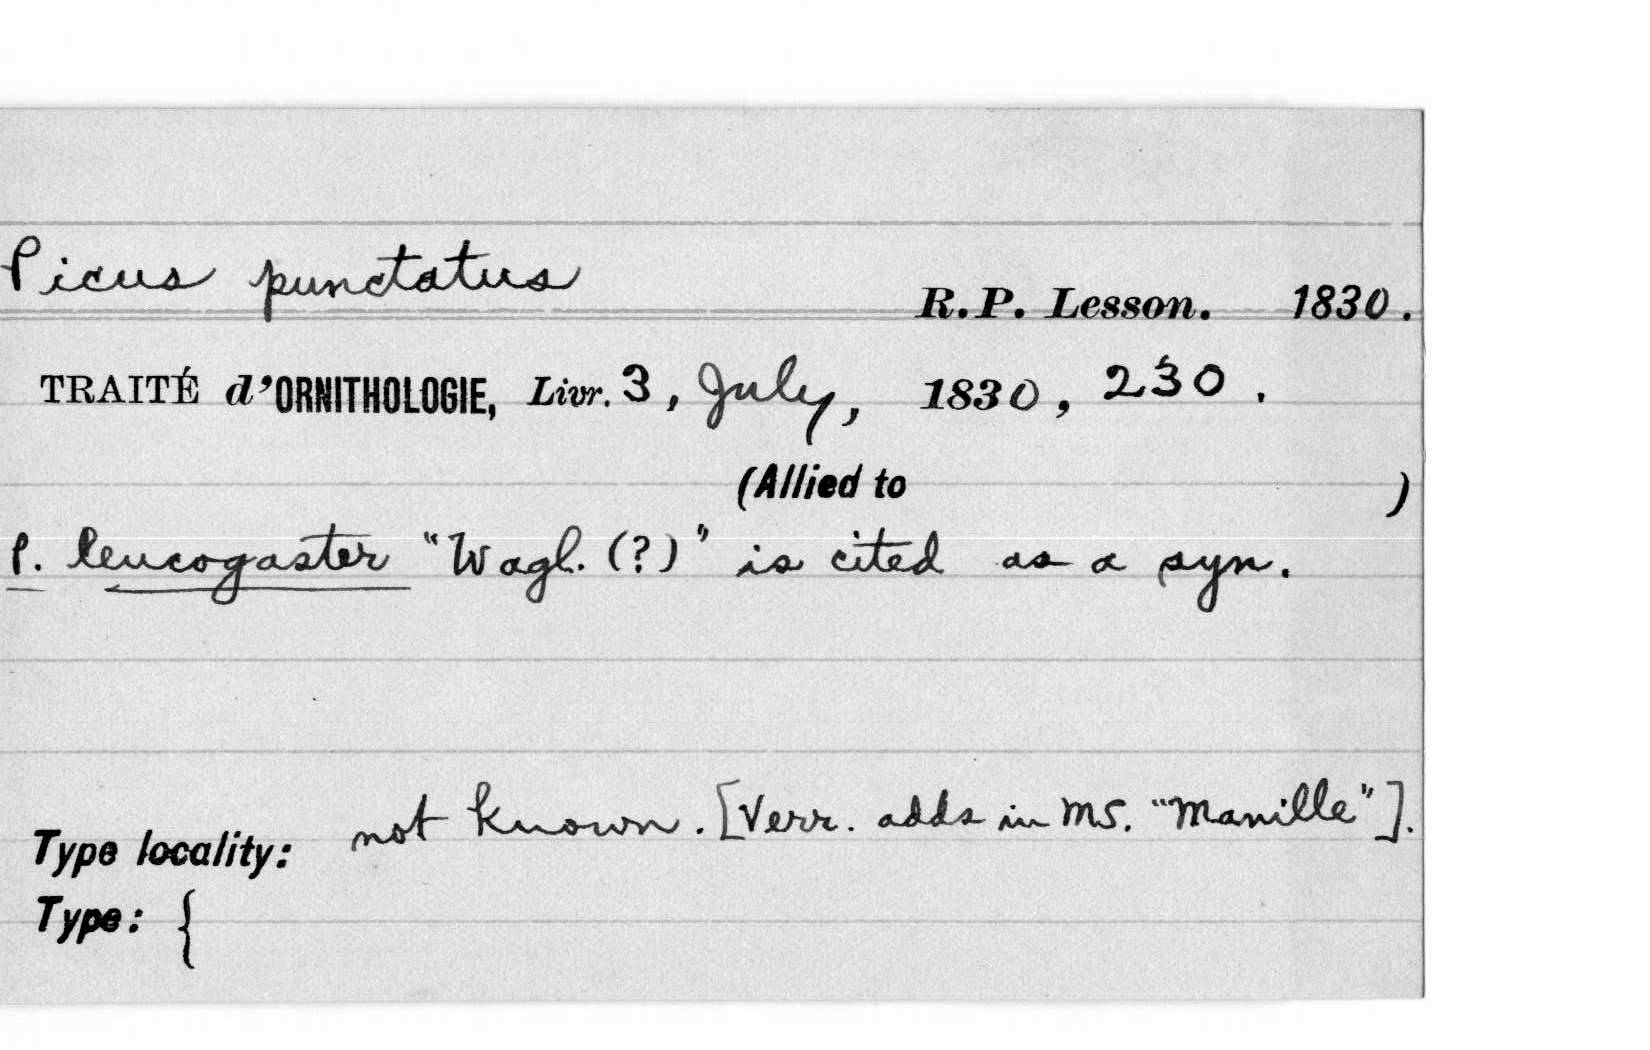 Picus punctatus
R.P. Lesson. 1830.
TRAITÉ d'ORNITHOLOGIE, Livr. 3, July, 1830, 230.
(Allied to )
P. leucogaster "Wagl. (?)" is cited as a syn.
Type locality: not known. [Verr. adds in MS. "Manille"].
Type: {